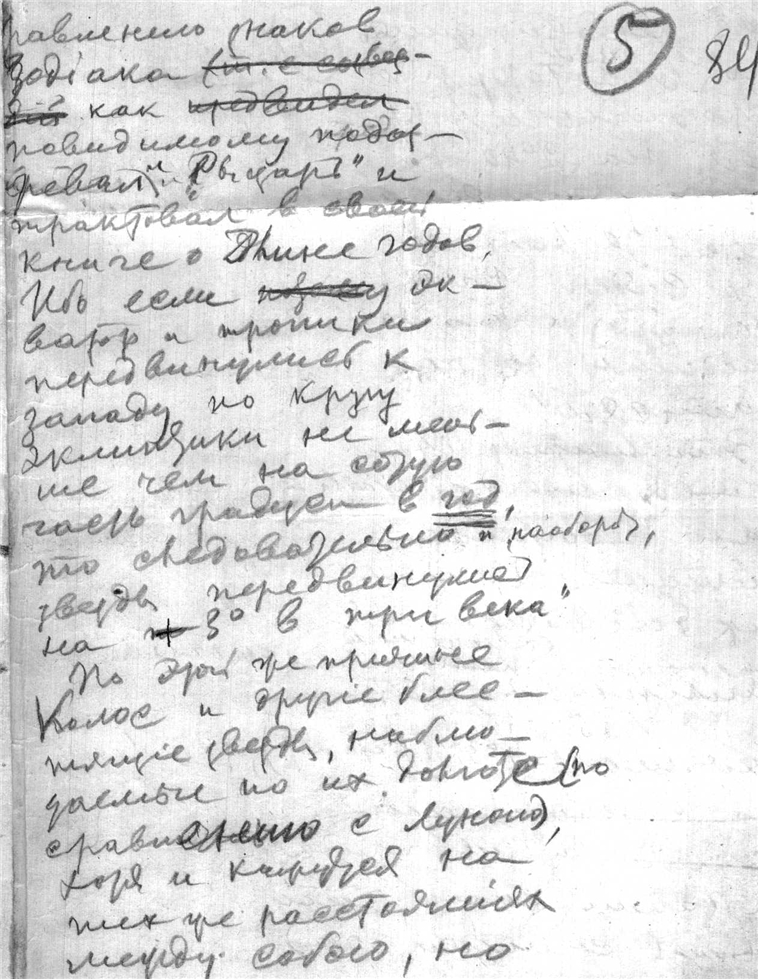 равнению знаков
Зодіака (т. е созвез-
дій как предвидел
повидимому подоз-
ревал "Рыцарь" и
трактовал в своей
книге о Длине годов.
Ибо если эк-
ватор и тропики
передвинулись к
западу по кругу
эклиптики не мень-
ше чем на сотую
часть градуса в год,
то следовательно и наоборот,
звезды передвинулись
на 3° в три века"
По этой же причине
Колос и другіе блес-
тящіе звезды, наблю-
даемые по их долготе (по
сравнению с Луной),
хотя и кажутся на
тех же расстояниях
между собою, но
5
84